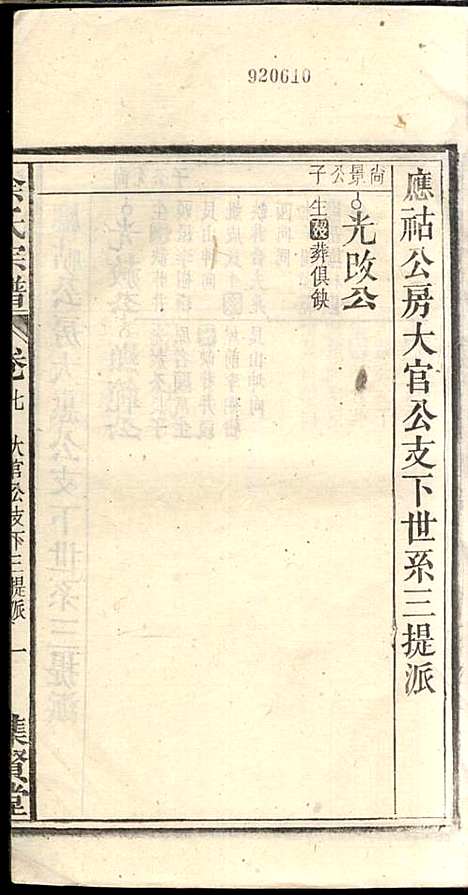 920610
應祜公房大官公支下世系三提派
尚景公子
光改公
生歿葬俱缺
余氏宗譜
卷七 大官公支下三提派 一
集賢堂